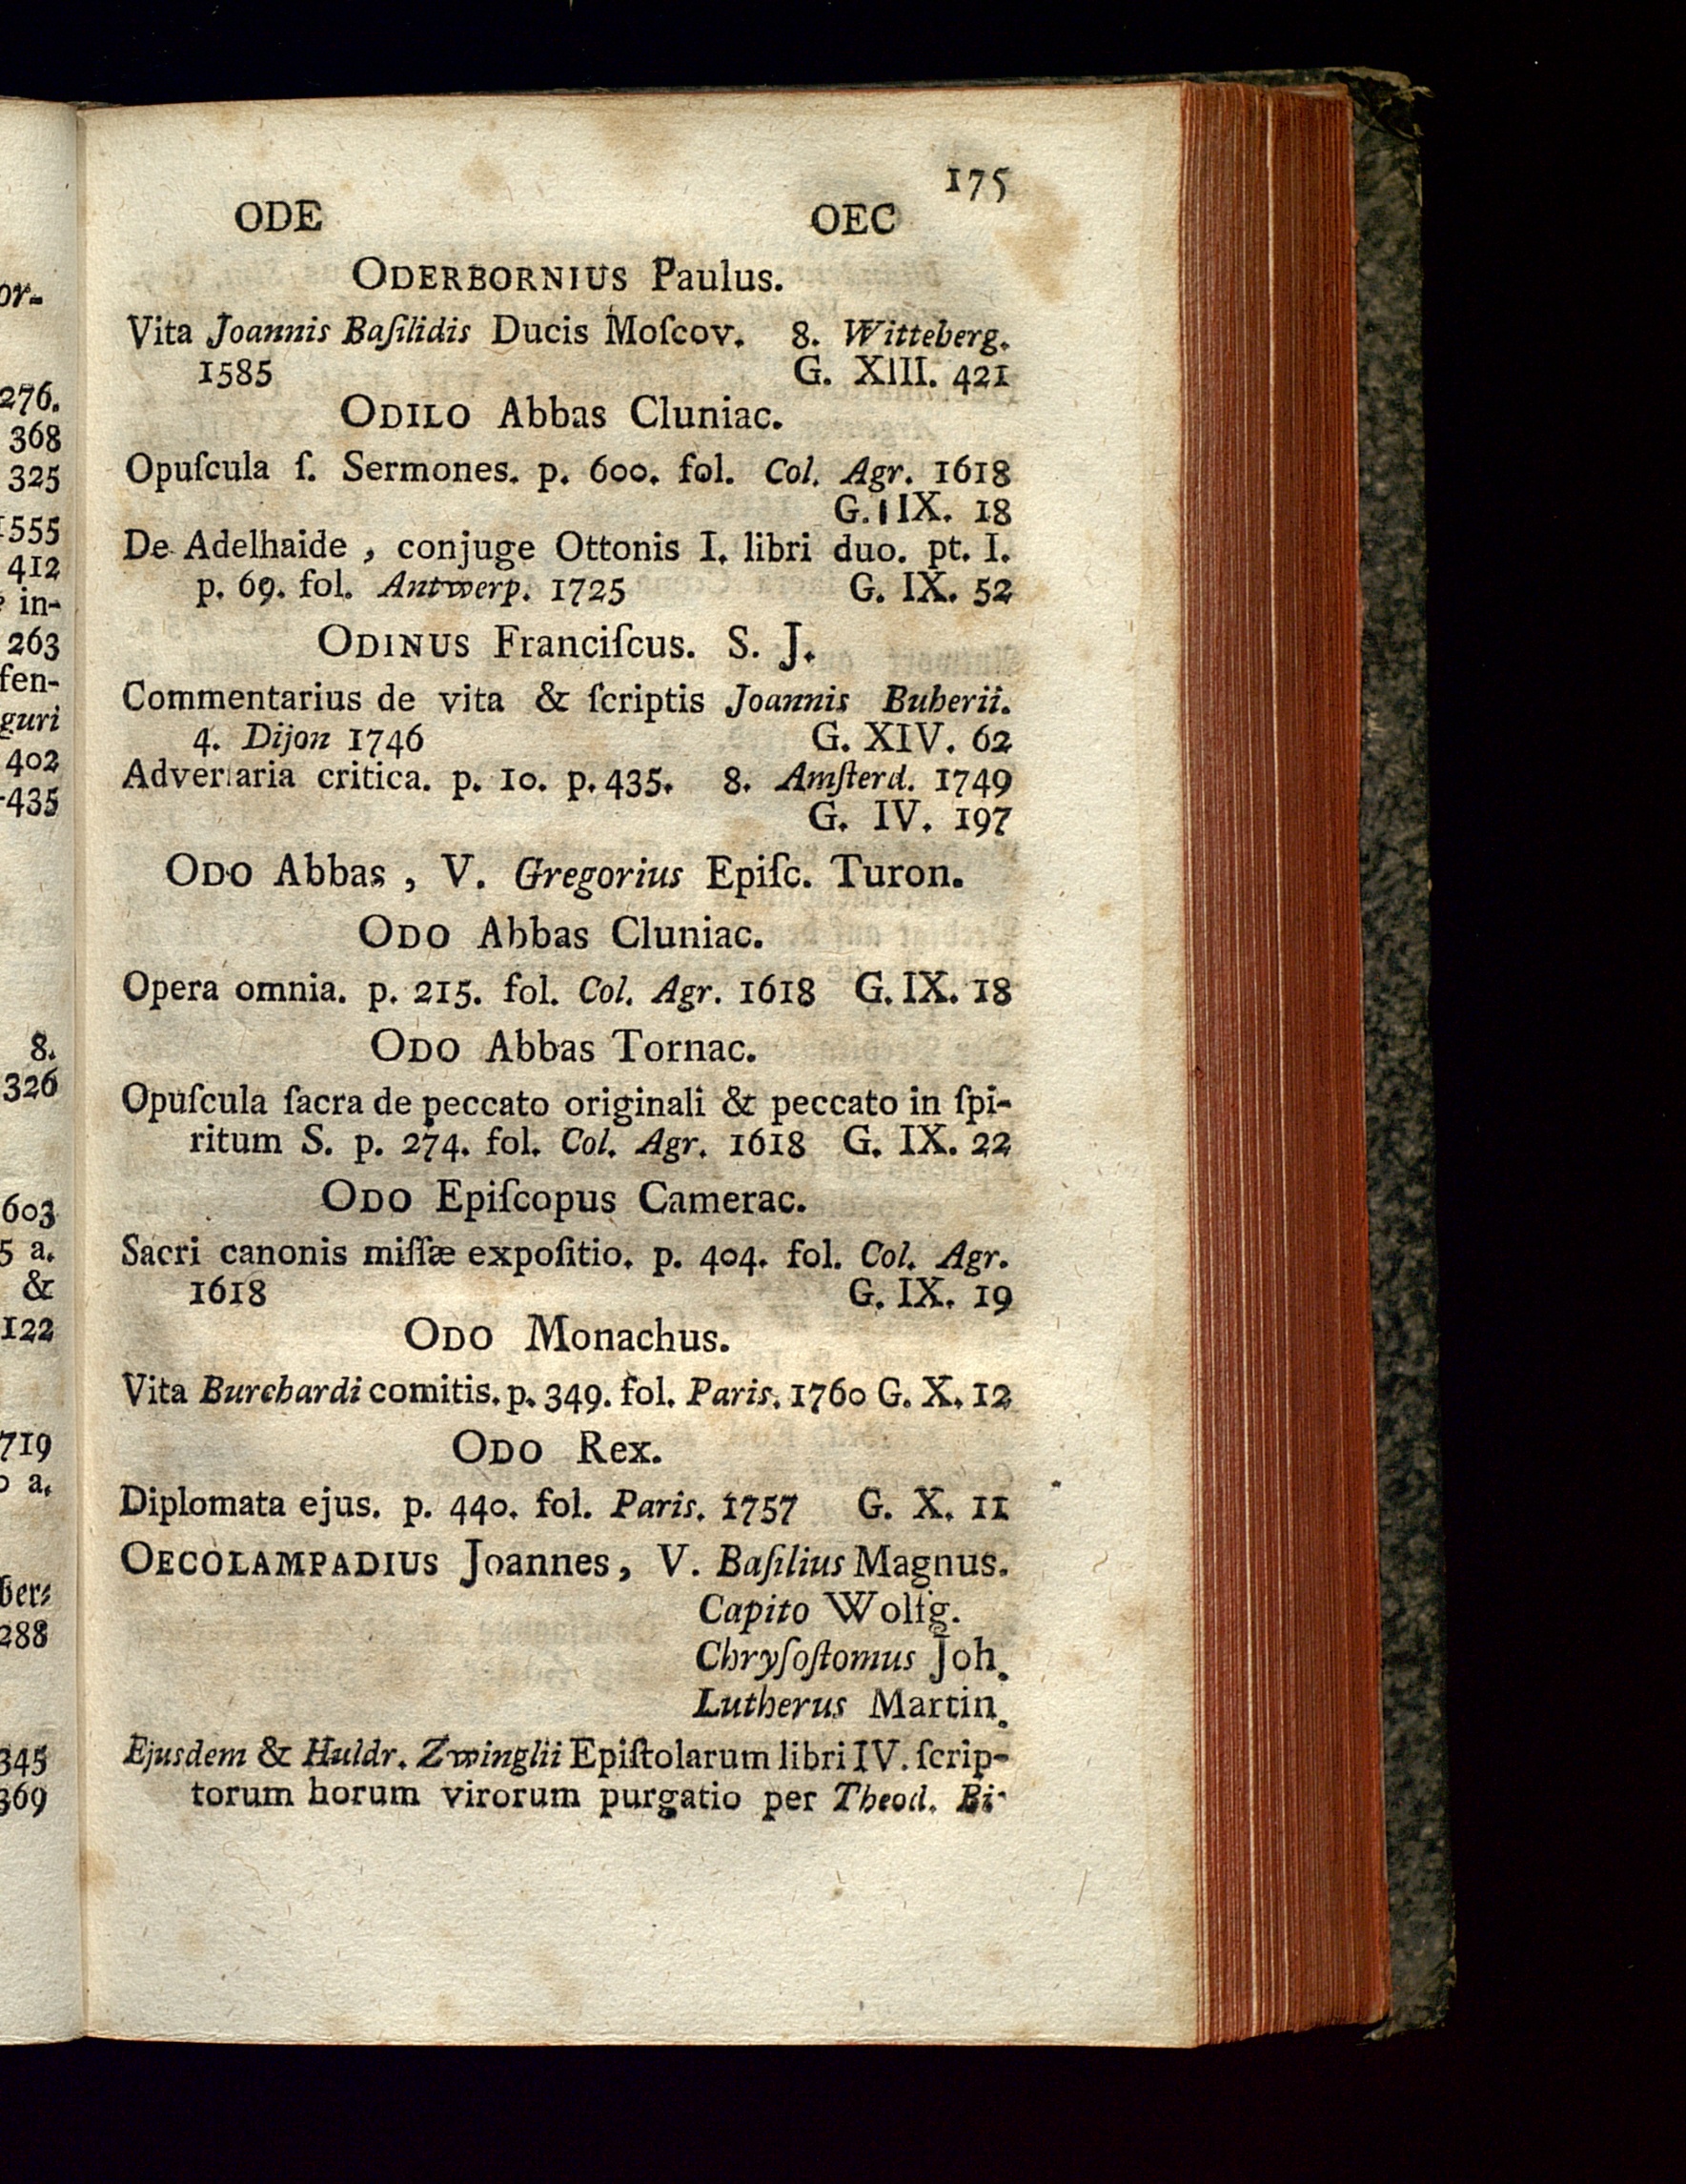 175
ODE OEC
ODERBORNIUS Paulus.
Vita Joannis Baſilidis Ducis Moſcov. 8. Witteberg.
1585 G. XIII. 421
ODILO Abbas Cluniac.
Opuſcula ſ. Sermones. p. 600. fol. Col. Agr. 1618
G. IX. 18
De Adelhaide , conjuge Ottonis I. libri duo. pt. I.
p. 69. fol. Antwerp. 1725 G. IX. 52
ODINUS Franciſcus. S. J.
Commentarius de vita & ſcriptis Joannis Buherii.
4. Dijon 1746 G. XIV. 62
Adverſaria critica. p. 10. p. 435. 8. Amſterd. 1749
G. IV. 197
ODO Abbas , V. Gregorius Epiſc. Turon.
ODO Abbas Cluniac.
Opera omnia. p. 215. fol. Col. Agr. 1618 G. IX. 18
ODO Abbas Tornac.
Opuſcula ſacra de peccato originali & peccato in ſpi-
ritum S. p. 274. fol. Col. Agr. 1618 G. IX. 22
ODO Epiſcopus Camerac.
Sacri canonis miſſæ expoſitio. p. 404. fol. Col. Agr.
1618 G. IX. 19
ODO Monachus.
Vita Burchardi comitis. p. 349. fol. Paris. 1760 G. X. 12
ODO Rex.
Diplomata ejus. p. 440. fol. Paris. 1757 G. X. 11
OECOLAMPADIUS Joannes, V. Baſilius Magnus.
Capito Wolfg.
Chryſoſtomus Joh.
Lutherus Martin.
Ejusdem & Huldr. Zwinglii Epiſtolarum libri IV. ſcrip-
torum horum virorum purgatio per Theod. Bi-